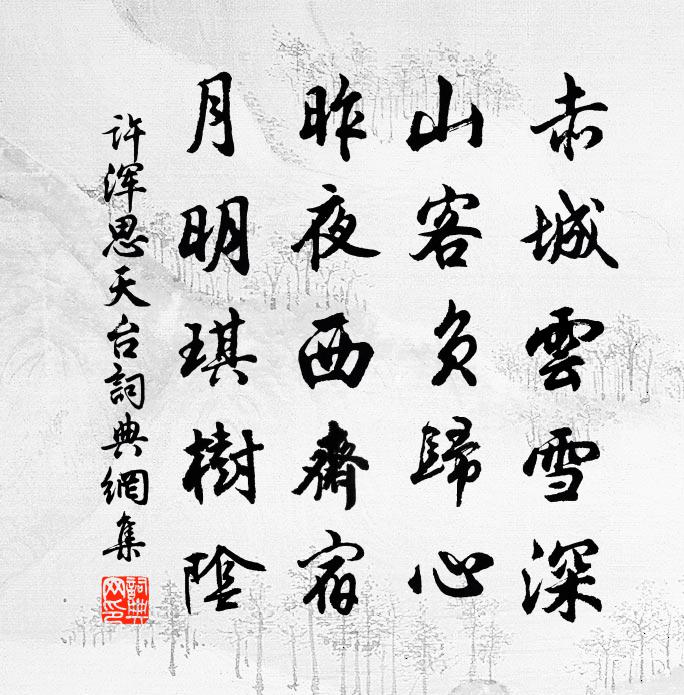 赤城雲雪深
山客負歸心
昨夜西齋宿
月明琪樹陰
许浑思天台詞典網集